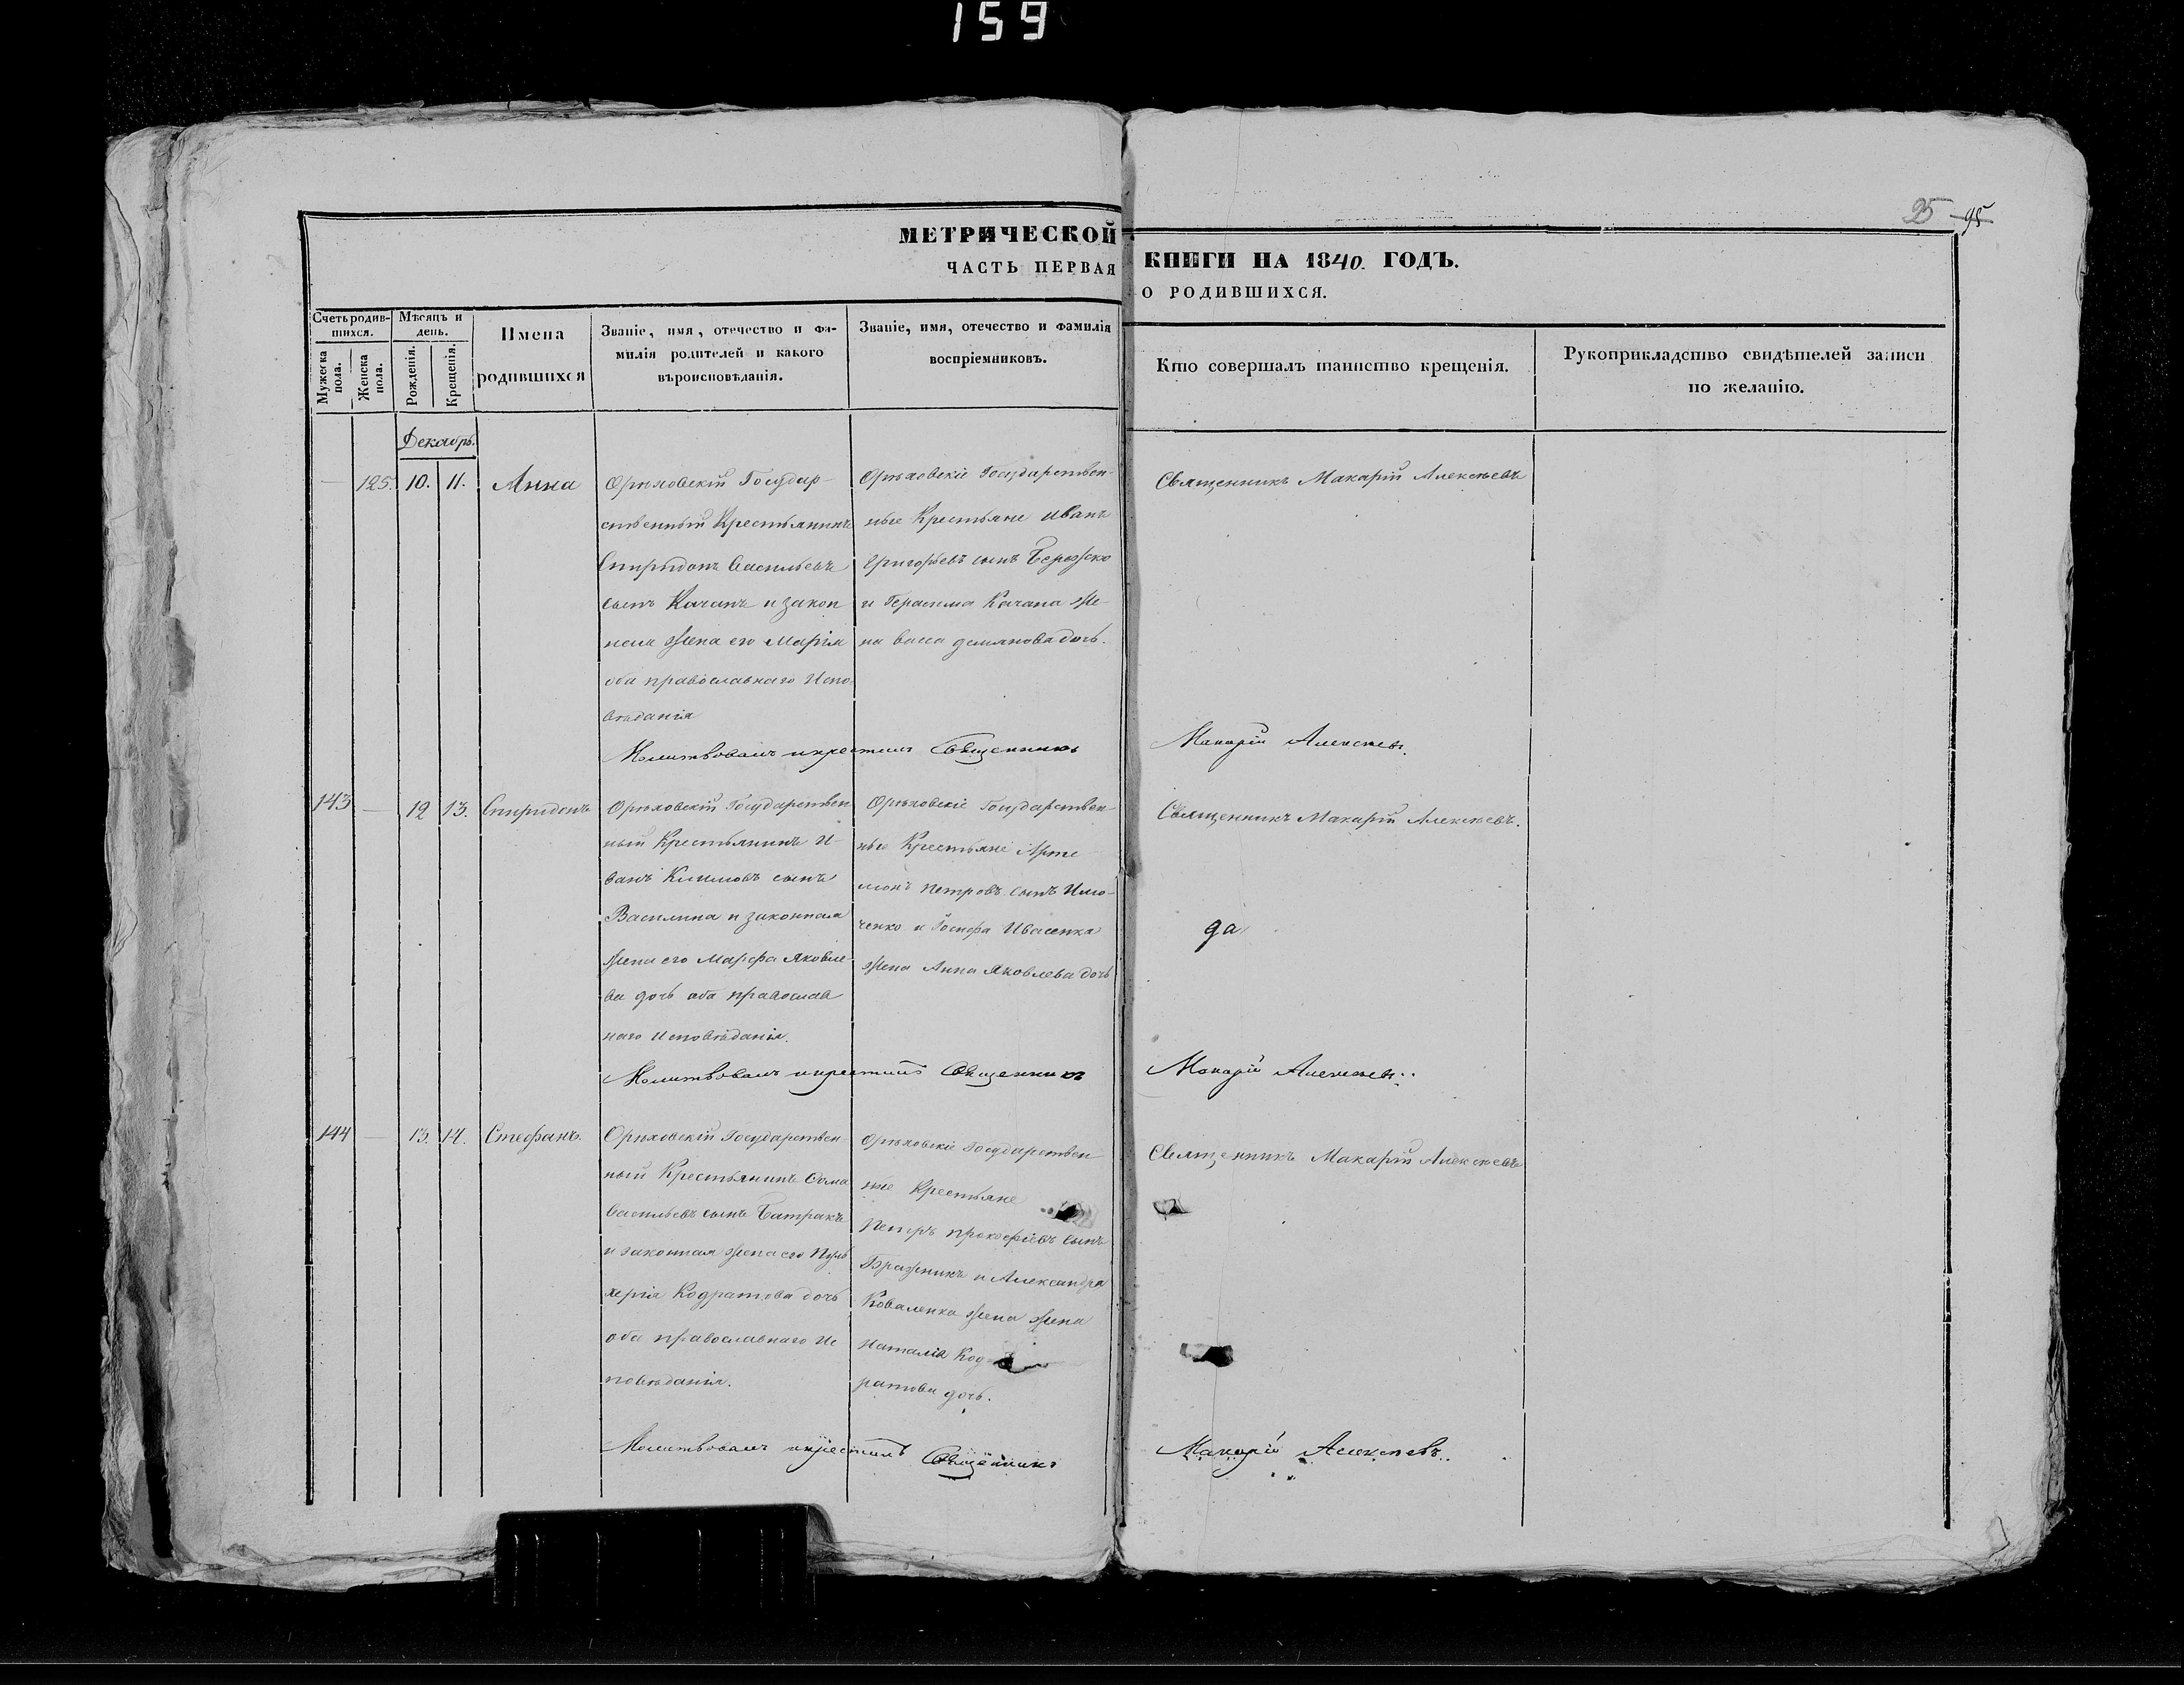 159
25 95
МЕТРИЧЕСКОЙ КНИГИ НА 1840. ГОДЪ.
ЧАСТЬ ПЕРВАЯ О РОДИВШИХСЯ.
Счетъ родив-
шихся.
Мужеска
пола.
Женска
пола.
Мѣсяцъ и
день.
Рожденія.
Крещенія.
Имена
родившихся
Званіе, имя, отечество и фа-
милія родителей и какого
вѣроисповѣданія.
Званіе, имя, отечество и фамилія
воспріемниковъ.
Кто совершалъ таинство крещенія.
Рукоприкладство свидѣтелей записи
по желанію.
Декабрь.
— 125. 10. 11. Анна
Орѣховскій Государ-
ственный Крестьянинъ
Спиридонъ Васильевъ
сынъ Качанъ и закон
ная жена его Марія
оба православнаго Испо-
вѣданія
Орѣховскіе Государствен-
ные Крестьяне Иванъ
Григорьевъ сынъ
и Герасима Качана же-
на Васса демянова дочь.
Священникъ Макарій Алексѣевъ
Молитвовалъ и крестилъ Священникъ Макарій Алексѣевъ.
143 — 12 13. Спиридонъ
Орѣховскій Государствен
ный Крестьянинъ И-
ванъ Климовъ сынъ
Василина и законная
жена его Марфа Яковле-
ва дочь оба православ
наго Исповѣданія.
Орѣховскіе Государствен-
ные Крестьяне Арте
монъ Петровъ сынъ
ченко и Іосифа Ивасенка
жена Анна Яковлева дочь
Священникъ Макарій Алексѣевъ.
да
Молитвовалъ и крестилъ Священникъ Макарій Алексѣевъ.
144 — 13. 14. Стефанъ.
Орѣховскій Государствен-
ный Крестьянинъ Фома
Васильевъ сынъ Батракъ
и законная жена его Пуль
херія Кодратова дочь
оба православнаго Ис
повѣданія.
Орѣховскіе Государствен
ные Крестьяне
Петръ прокофіевъ сынъ
Бражникъ и Александра
Коваленка жена жена
Наталія Код
ратова дочь.
Священникъ Макарій Алексѣевъ
Молитвовалъ и крестилъ Священникъ Макарій Алексѣевъ.